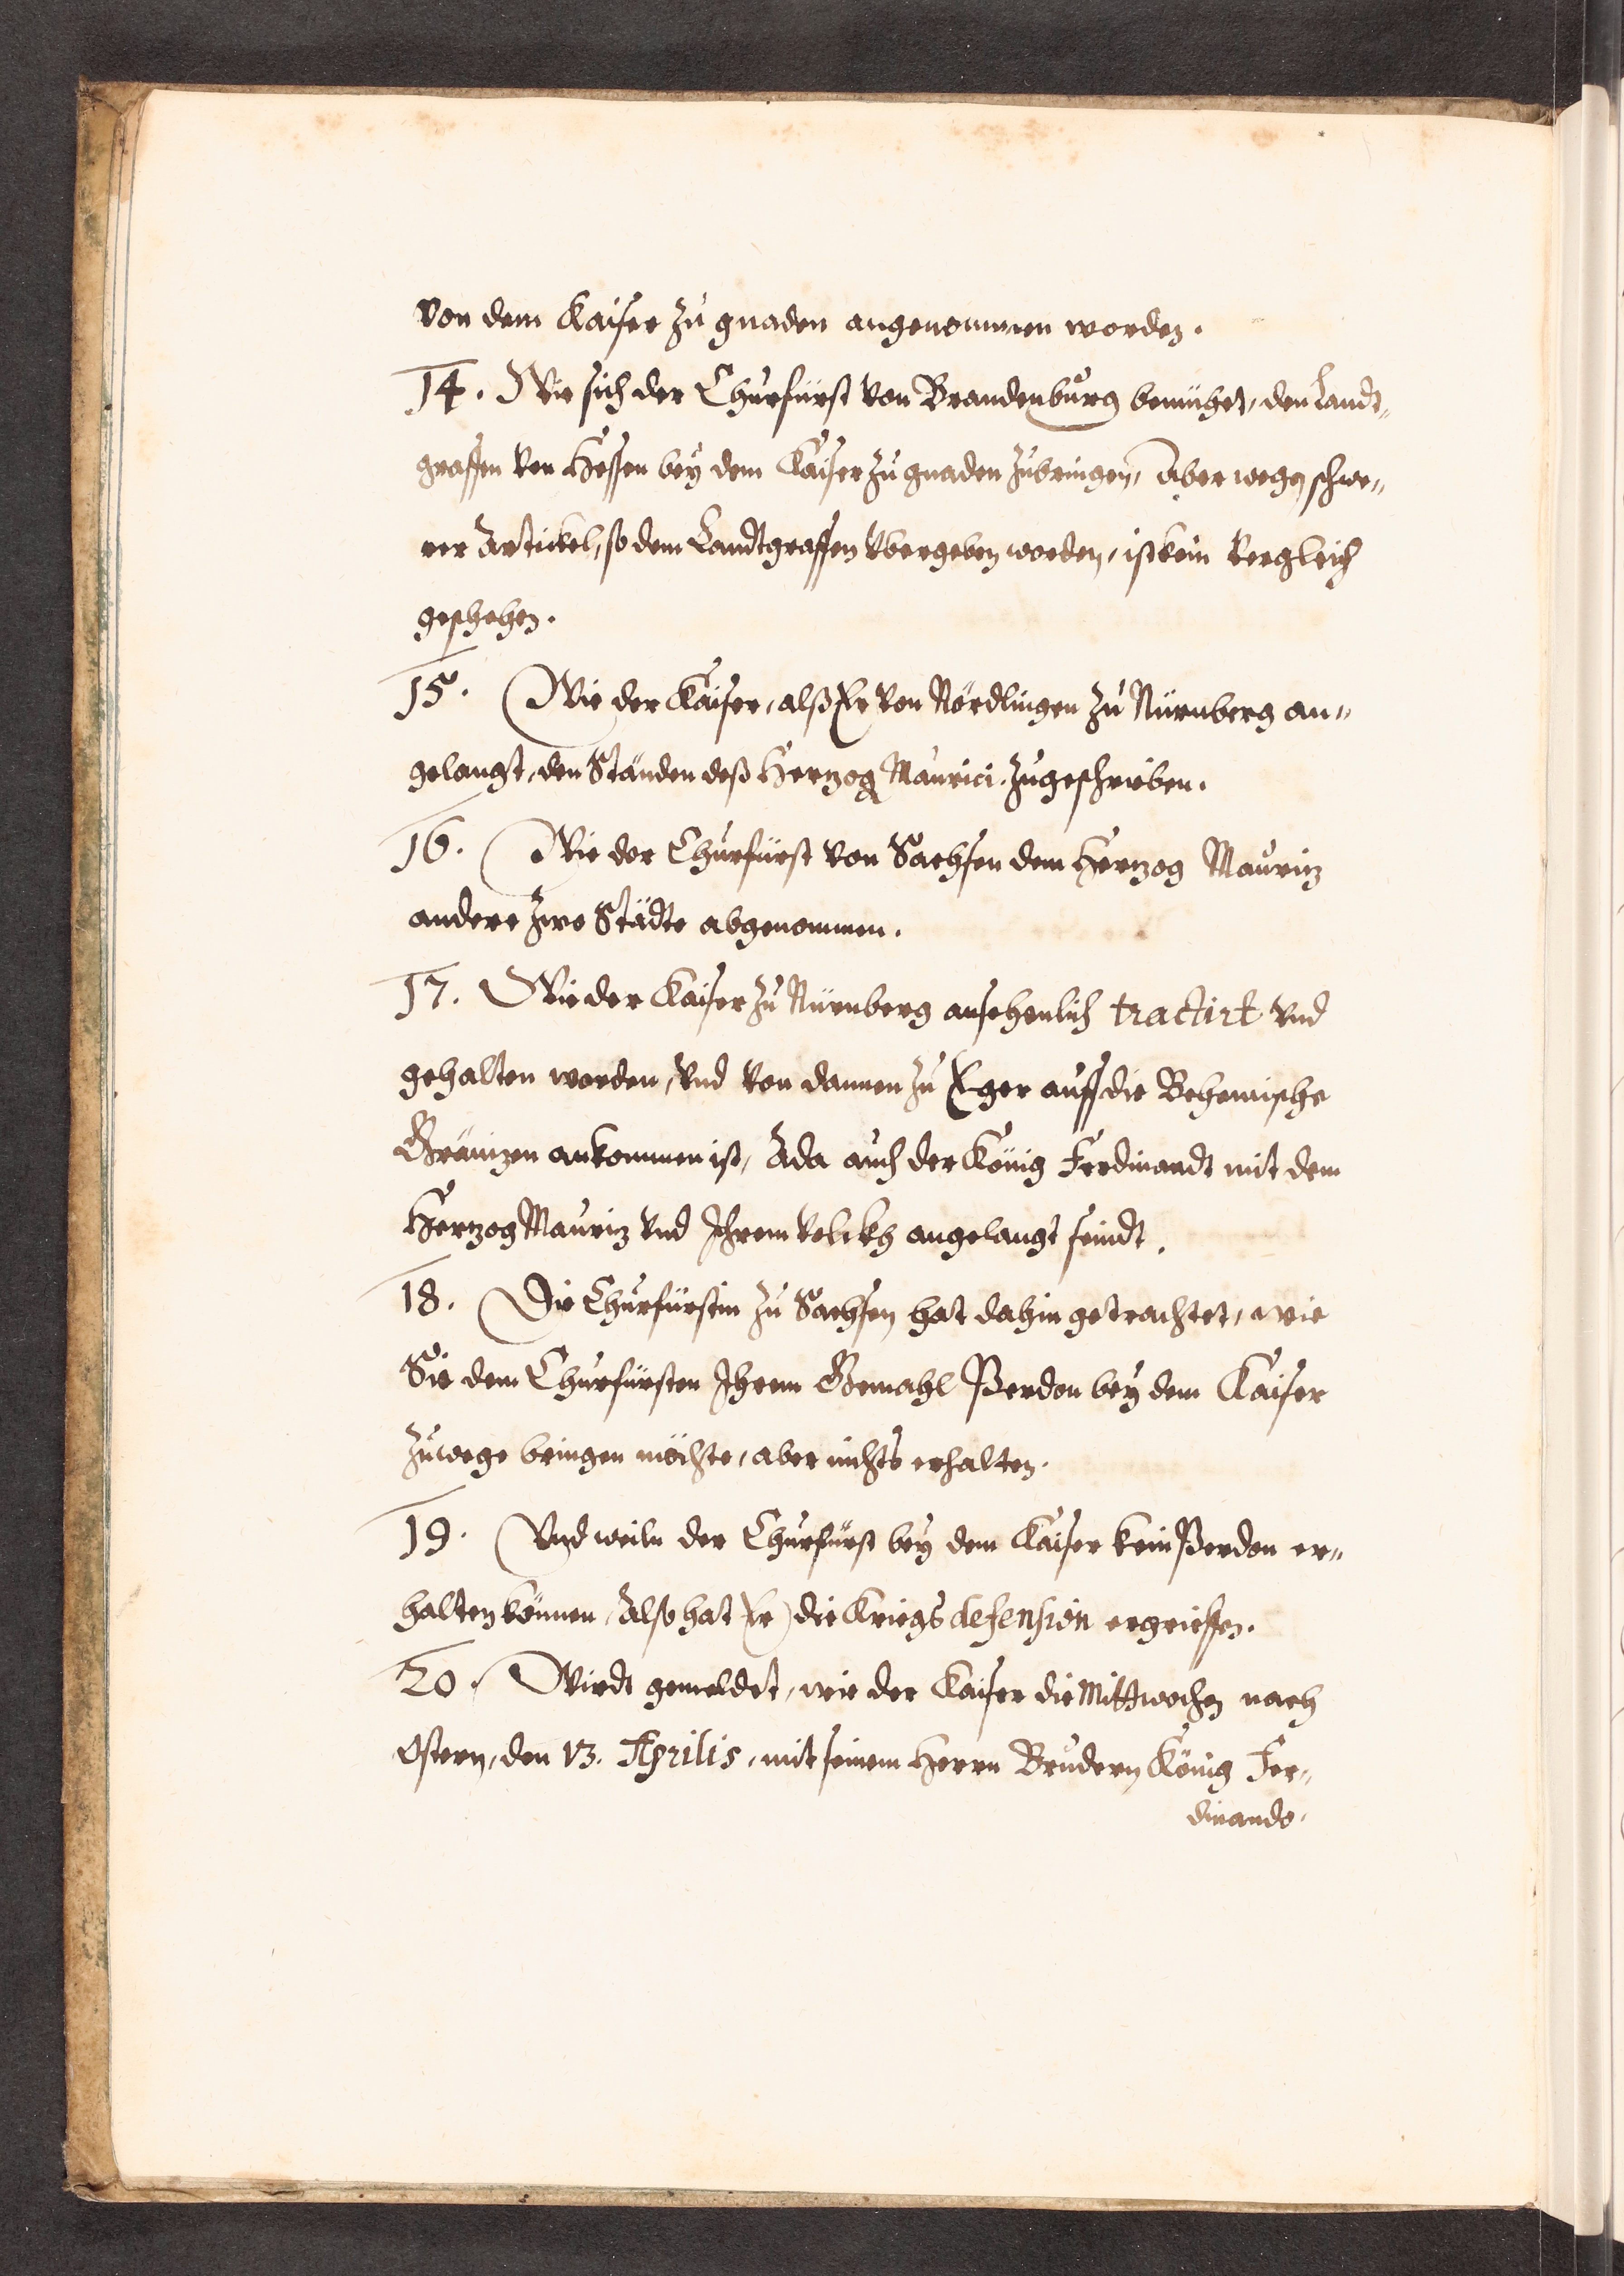 von dem Kaiser zu gnaden angenommen worden.
14. Wie sich der Churfürst von Brandenburg bemühet, den Landt-
graffen von Hessen bey dem Kaiser zu gnaden zubringen, Aber wegen schwe-
rer Artickel, so dem Landtgraffen vbergeben worden, ist kein vergleich
geschehen.
15. Wie der Kaiser, alß Er von Nördlingen zu Nürnberg an-
gelangt, den Ständen deß Hertzog Maurici zugeschrieben.
16. Wie der Churfürst von Sachsen dem Hertzog Mauritz
andere zwo Städte abgenommen.
17. Wie der Kaiser zu Nürnberg ansehenlich tractirt vnd
gehalten worden, vnd von dannen zu Eger auff die Behemische
Gränitzen ankommen ist, Alda auch der König Ferdinandt mit dem
Hertzog Mauritz vnd Ihrem volckh angelangt seindt.
18. Die Churfürstin zu Sachsen hat dahin getrachtet, wie
Sie dem Churfürsten Ihrem Gemahl Perdon bey dem Kaiser
zuwege bringen möchte, aber nichts erhalten.
19. Vnd weiln der Churfürst bey dem Kaiser kein Perdon er-
halten können, Also hat Er die Kriegs defension ergrieffen.
20. Wirdt gemeldet, wie der Kaiser die Mittwochen nach
Ostern, den 13. Aprilis, mit seinem Herrn Brudern König Fer-
dinando.